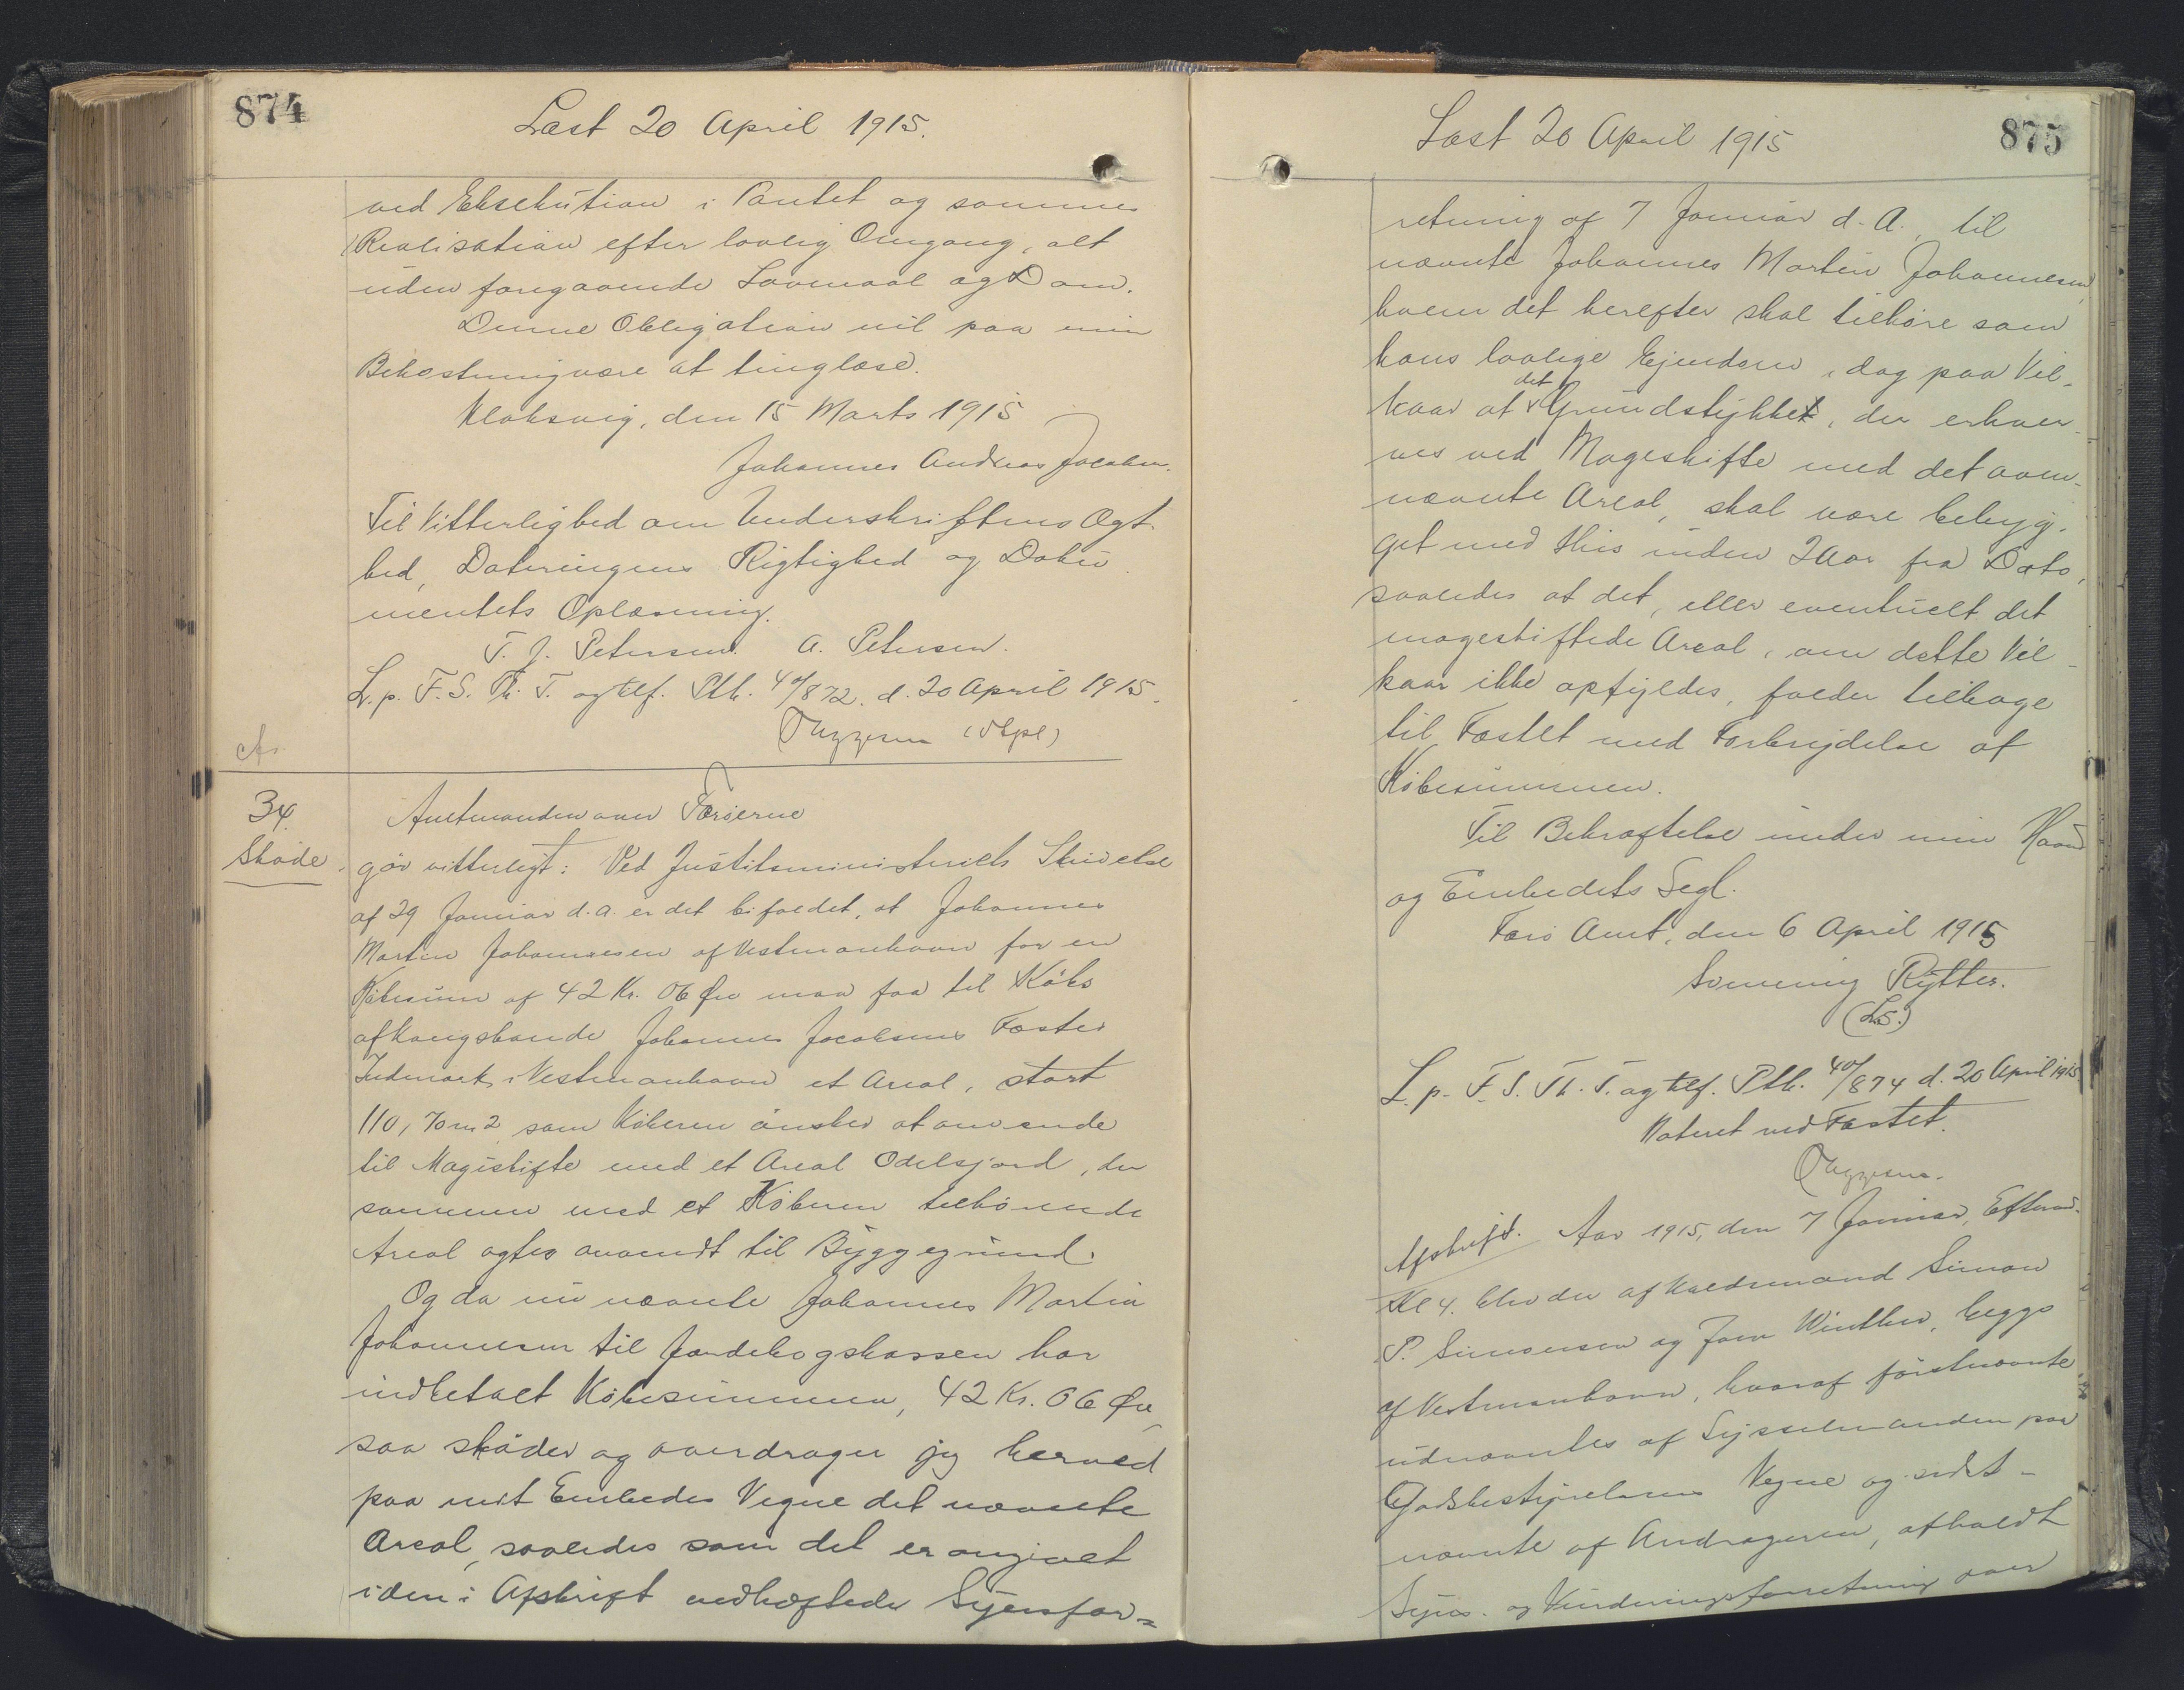 874
Læst 20 April 1915.
ved Eksekution i Pantet og sammes
Realisation efter lovlig Omgang, alt
uden foregaaende Lovmaal og Dom.
Denne Obligation vil paa min
Bekostning være at tinglæse.
Klaksvig, den 15 Marts 1915
Johannes Andreas Jacobsen.
Til Vitterlighed om Underskriftens Ægt-
hed, Dateringens Rigtighed og Doku-
mentets Oplæsning.
T. J. Petersen. A. Petersen.
L. p. F. S. Th. T. og tilf. Ptb. 40/872. d. 20 April 1915.
34.
Skøde.
Amtmanden over Færøerne
gør vitterligt: Ved Justitsministeriets Skrivelse
af 29 Januar d. A. er det bifaldet, at Johannes
Martin Johannesen af Vestmanhavn for en
Købesum af 42 Kr. 06 Øre maa faa til Købs
af Kongsbonde Johannes Jacobsens Fæstes
Indmark i Vestmanhavn et Areal, stort
110,70 m2 som Køberen ønsker at anvende
til Mageskifte med et Areal Odelsjord, der
sammen med et Køberen tilhørende
Areal agtes anvendt til Byggegrund.
Og da nu nævnte Johannes Martin
Johannesen til Jordebogskassen har
indbetalt Købesummen, 42 Kr. 06 Øre
saa skøder og overdrager jeg herved
paa mit Embedes Vegne det nævnte
Areal, saaledes som det er angivet
i den i Afskrift vedhæftede Synsfor=
875
Læst 20 April 1915
retning af 7 Januar d. A., til
nævnte Johannes Martin Johannesen,
hvem det herefter skal tilhøre som
hans lovlige Ejendom, dog paa Vil-
kaar at det Grundstykke, der erhver-
ves ved Mageskifte med det oven-
nævnte Areal, skal være bebyg-
get med Hus inden 2 Aar fra Dato,
saaledes at det, eller eventuelt det
mageskiftede Areal, om dette Vil-
kaar ikke opfyldes, falder tilbage
til Fæstet med Forbrydelse af
Købesummen.
Til Bekræftelse under min Haand
og Embedets Segl.
Færø Amt, den 6 April 1915
Svenning Rytter.
(L.S.)
L. p. F. S. Th. T. og tilf. Ptb. 40/874 d. 20 April 1915
Noteret ved Fæstet.
Afskrift. Aar 1915, den 7 Januar, Efterm.
Kl 4. blev der af Valdsmand Simon
P. Simonsen og Joen Winther, begge
af Vestmanhavn, hvoraf førstnævnte
udnævntes af Sysselmanden paa
Godsbestyrelsens Vegne og sidst-
nævnte af Andrageren, afholdt
Syns- og Vurderingsforretning over